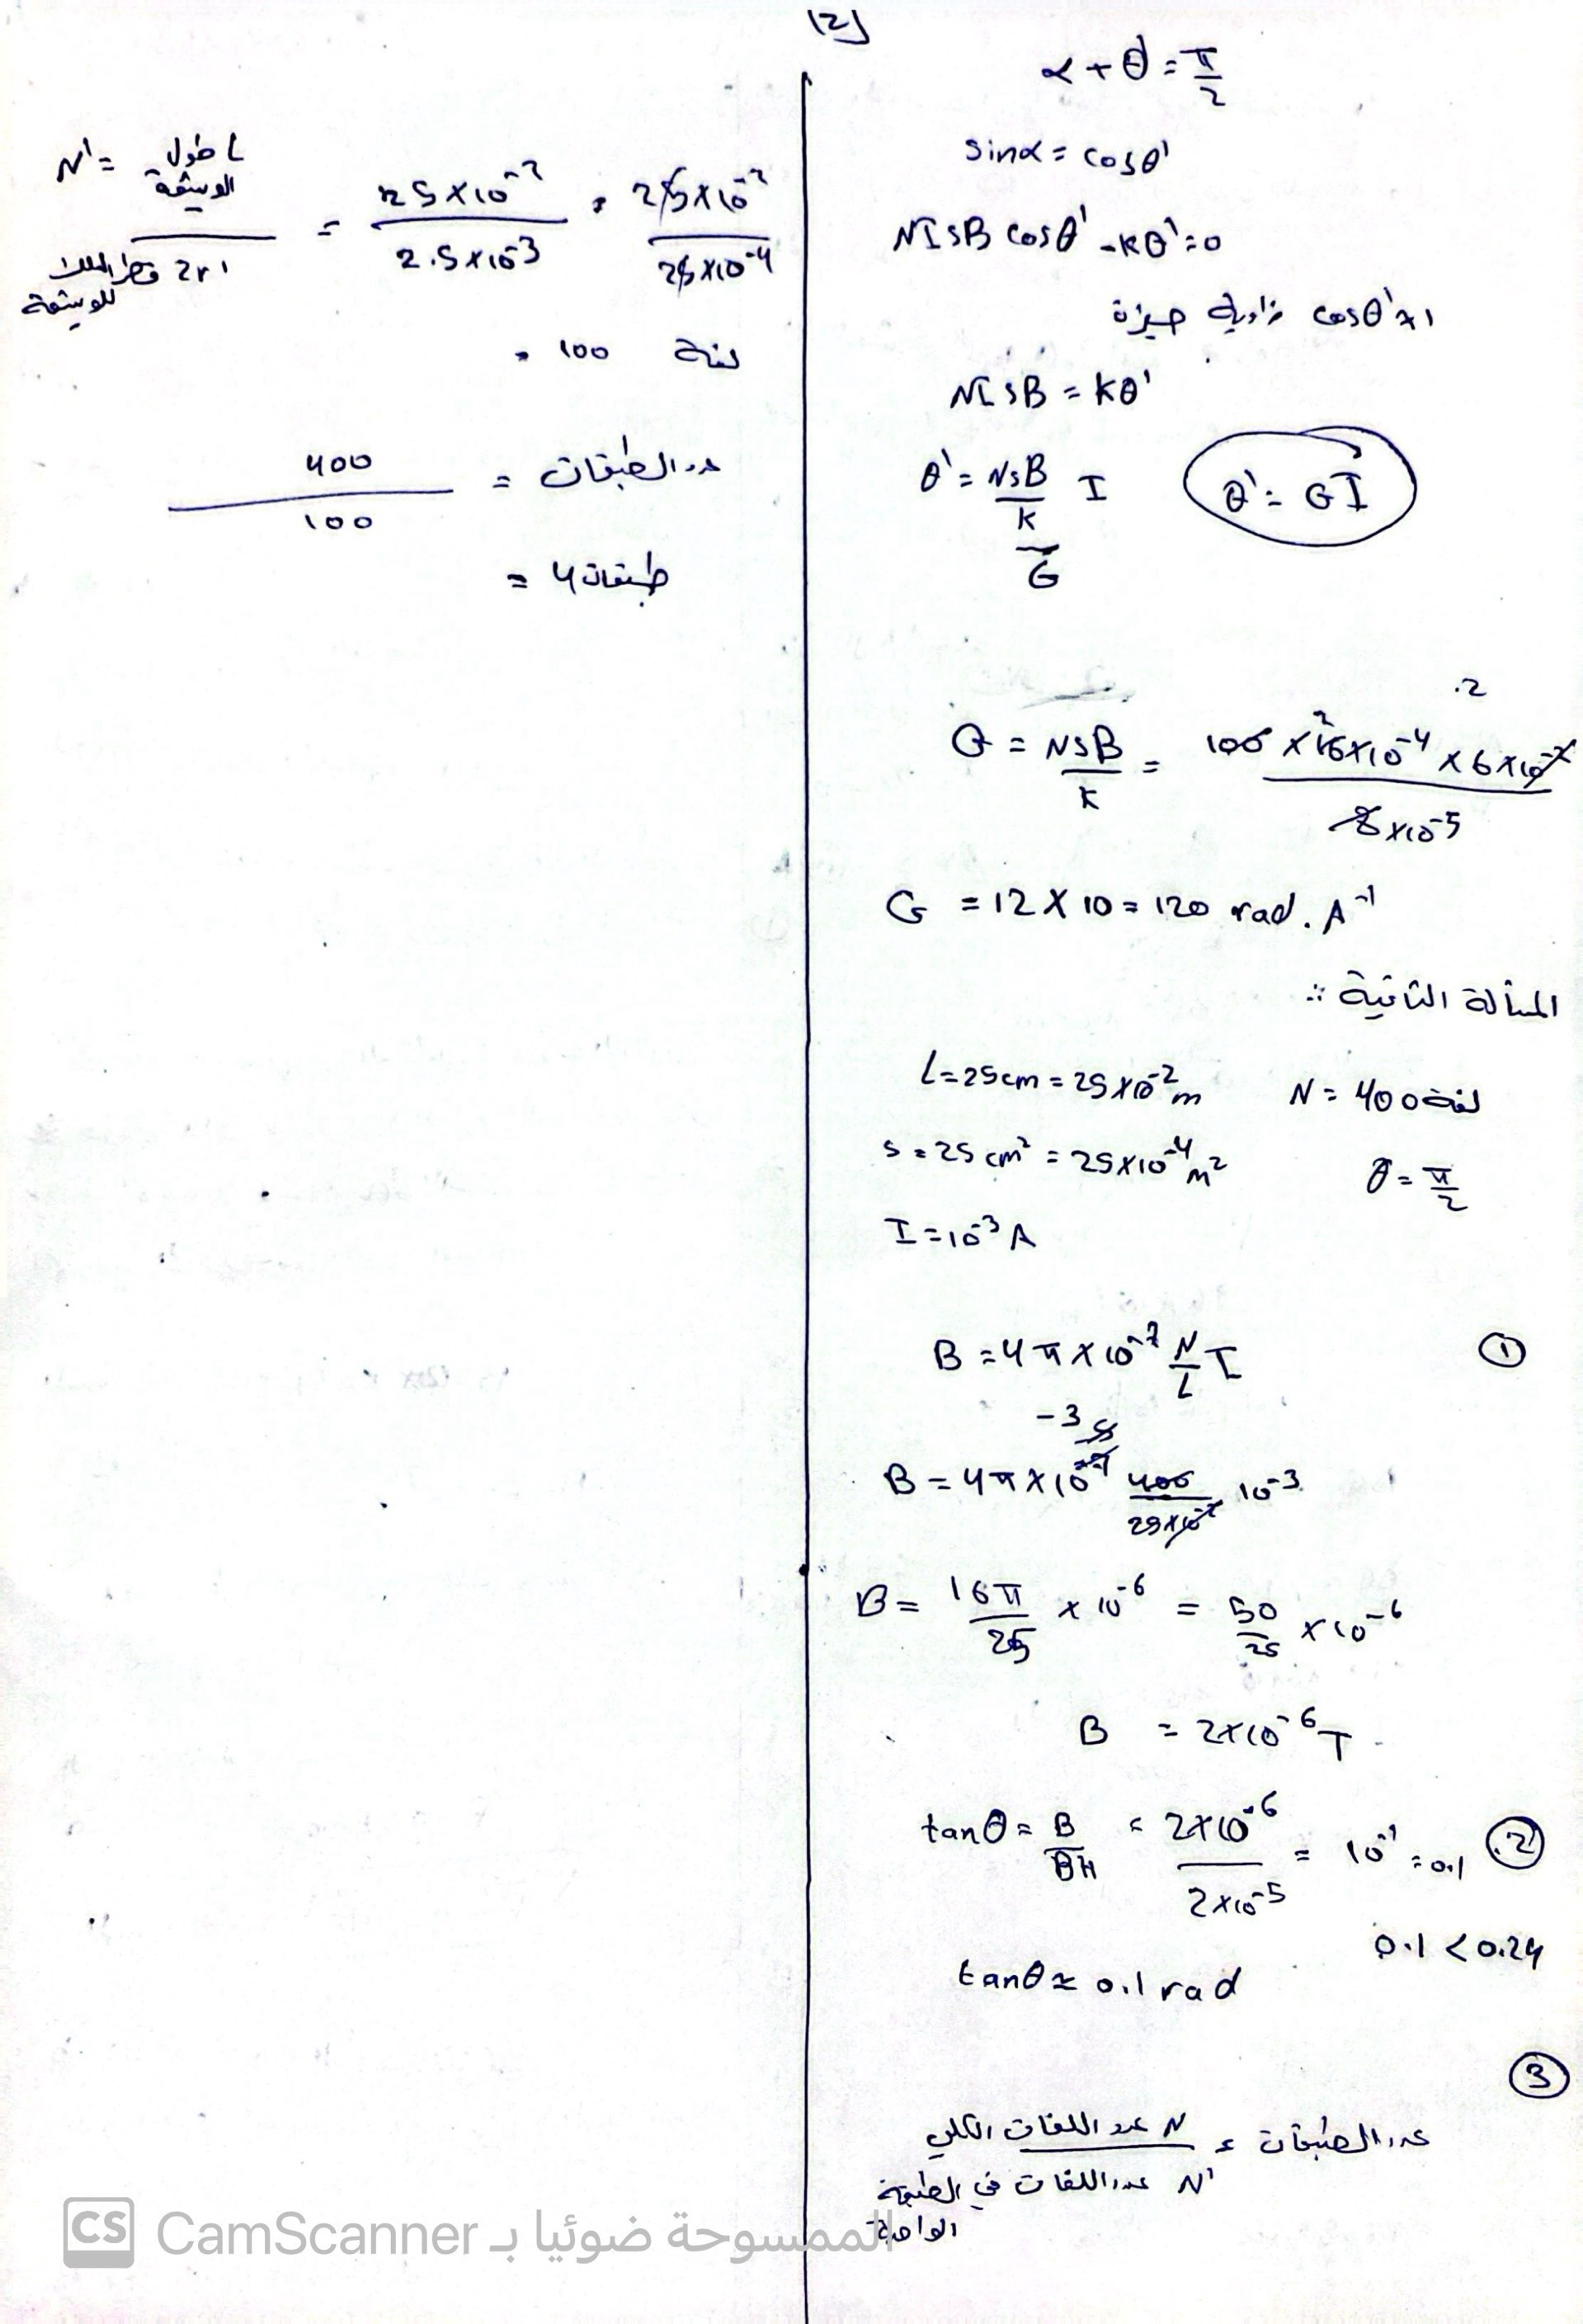 12]
α + θ' = π/2
sinα = cosθ'
NISB cosθ' - kθ' = 0
cosθ' ≈ 1 زاوية صغيرة
NISB = kθ'
θ' = NSB/k I
G
θ' = GI
G = NSB/k = 100 × 16×10^-4 × 6×10^-2 / 8×10^-5
G = 12 × 10 = 120 rad . A^-1
المسألة الثانية :
L = 25cm = 25×10^-2 m N = 400 لفة
s = 25 cm² = 25×10^-4 m² θ = π/2
I = 10^-3 A
① B = 4π×10^-7 N/L I
B = 4π×10^-7 400/25×10^-2 10^-3
B = 16π/25 × 10^-6 = 50/25 × 10^-6
B = 2×10^-6 T
② tanθ = B/BH = 2×10^-6 / 2×10^-5 = 10^-1 = 0.1
0.1 < 0.24
tanθ ≈ 0.1 rad
③
عدد الطبقات = N عدد اللفات الكلي / N' عدد اللفات في الطبقة الواحدة
N' = L طول الوشيعة / 2r' قطر السلك للوشيعة = 25×10^-2 / 2.5×10^-3 = 25×10^-2 / 25×10^-4
= 100 لفة
عدد الطبقات = 400/100
= 4 طبقات
CS الممسوحة ضوئيا بـ CamScanner